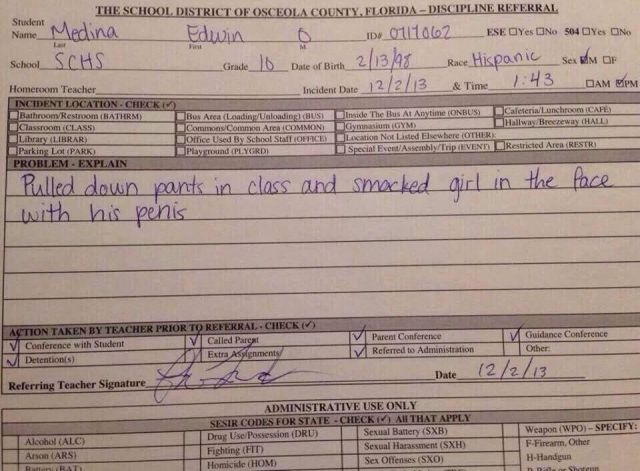 THE SCHOOL DISTRICT OF OSCEOLA COUNTY, FLORIDA – DISCIPLINE REFERRAL
Student
Name Medina Edwin O ID# 0717062 ESE □Yes □No 504 □Yes □No
Last First M.
School SCHS Grade 10 Date of Birth 2/13/98 Race Hispanic Sex ☑M □F
Homeroom Teacher Incident Date 12/2/13 & Time 1:43 □AM ☑PM
INCIDENT LOCATION - CHECK (✓)
□Bathroom/Restroom (BATHRM) □Bus Area (Loading/Unloading) (BUS) □Inside The Bus At Anytime (ONBUS) □Cafeteria/Lunchroom (CAFÉ)
□Classroom (CLASS) □Commons/Common Area (COMMON) □Gymnasium (GYM) □Hallway/Breezeway (HALL)
□Library (LIBRAR) □Office Used By School Staff (OFFICE) □Location Not Listed Elsewhere (OTHER):
□Parking Lot (PARK) □Playground (PLYGRD) □Special Event/Assembly/Trip (EVENT) □Restricted Area (RESTR)
PROBLEM - EXPLAIN
Pulled down pants in class and smacked girl in the face
with his penis
ACTION TAKEN BY TEACHER PRIOR TO REFERRAL - CHECK (✓)
✓ Conference with Student ✓ Called Parent ✓ Parent Conference ✓ Guidance Conference
✓ Detention(s) Extra Assignments ✓ Referred to Administration Other:
Referring Teacher Signature Date 12/2/13
ADMINISTRATIVE USE ONLY
SESIR CODES FOR STATE - CHECK (✓) All THAT APPLY
Alcohol (ALC) Drug Use/Possession (DRU) Sexual Battery (SXB) Weapon (WPO) – SPECIFY:
Arson (ARS) Fighting (FIT) Sexual Harassment (SXH) F-Firearm, Other
Battery (BAT) Homicide (HOM) Sex Offenses (SXO) H-Handgun